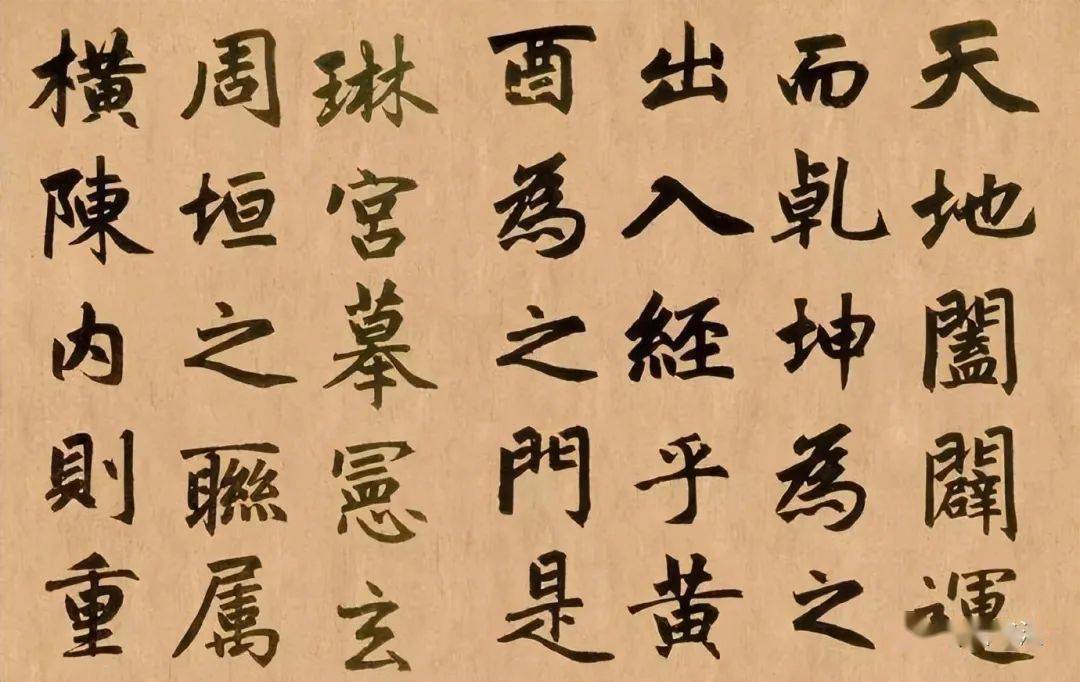 天地闔闢運
而乹坤為之
出入經乎黄
酉為之門是
琳宮摹憲玄
周垣之聯属
橫陳内則重